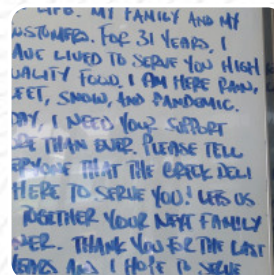 LIFE. MY FAMILY AND MY
USTOMERS. FOR 31 YEARS, I
AVE LIVED TO SERVE YOU HIGH
UALITY FOOD. I AM HERE RAIN,
EET, SNOW, AND PANDEMIC.
DAY, I NEED YOUR SUPPORT
ORE THAN EVER. PLEASE TELL
ERYONE THAT THE CREEK DELI
HERE TO SERVE YOU! LETS US
TOGETHER YOUR NEXT FAMILY
NER. THANK YOU FOR THE LAST
YEARS AND I HOPE TO SERVE